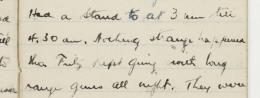 Had a Stand to at 3 am till
4.30 am. Nothing strange happened
than Fritz kept going with long
range guns all night. They were